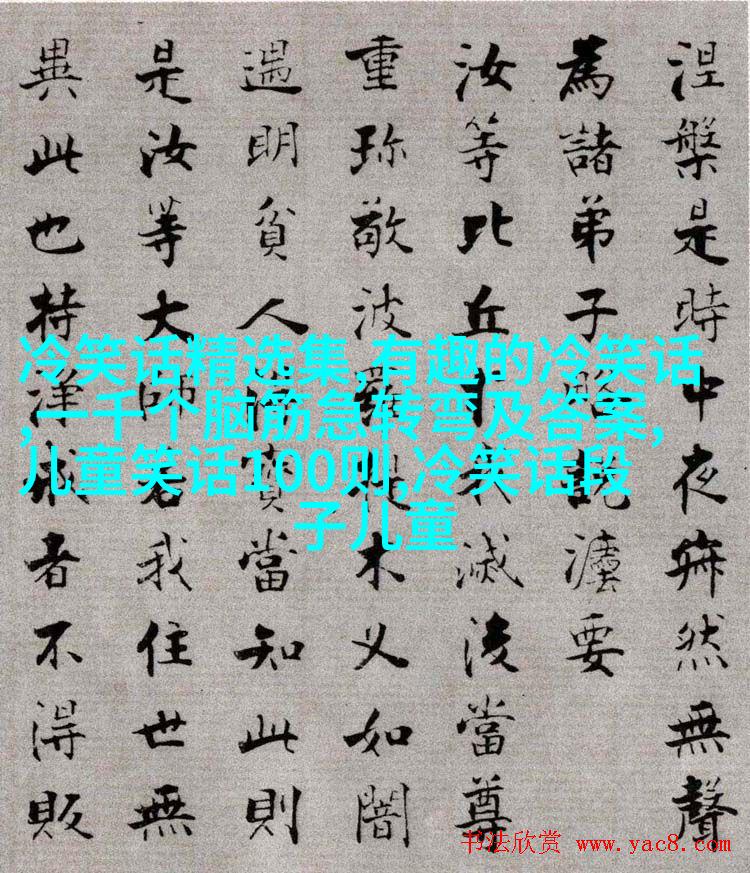 涅槃是時中夜寂然無聲
為諸弟子略說灋要
汝等比丘於我滅後當尊
重珍敬波羅提木叉如闇
遇明貧人得寶當知此則
是汝等大師若我住世無
異此也持淨戒者不得販
冷笑话精选集,有趣的冷笑话
,一千个脑筋急转弯及答案,
儿童笑话100则,冷笑话段
子儿童
书法欣赏 www.yac8.com